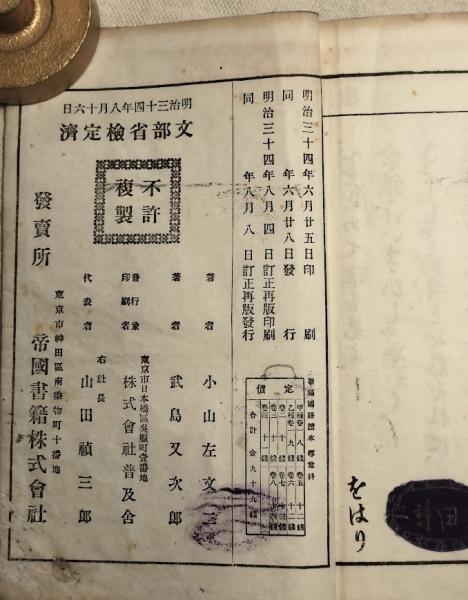 をはり
明治三十四年六月廿五日印刷
同年六月廿八日發行
明治三十四年八月四日訂正再版印刷
同年八月八日訂正再版發行
定價
甲種巻 八錢 巻五 十二錢
乙種巻 九錢 巻六 十二錢
巻二 十錢 巻七
巻三 十錢 巻八
十錢
合計金九十九錢
明治三十四年八月十六日
文部省檢定濟
不許
複製
著者 小山左文二
著者 武島又次郎
東京市日本橋區吳服町壹番地
發行兼
印刷者 株式會社普及舍
右社長
代表者 山田禎三郎
發賣所
東京市神田區南乘物町十番地
帝國書籍株式會社